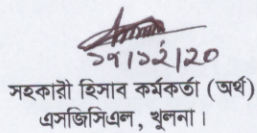 ২৭/১২/২০
সহকারী হিসাব কর্মকর্তা (অর্থ)
এসজিসিএল, খুলনা।